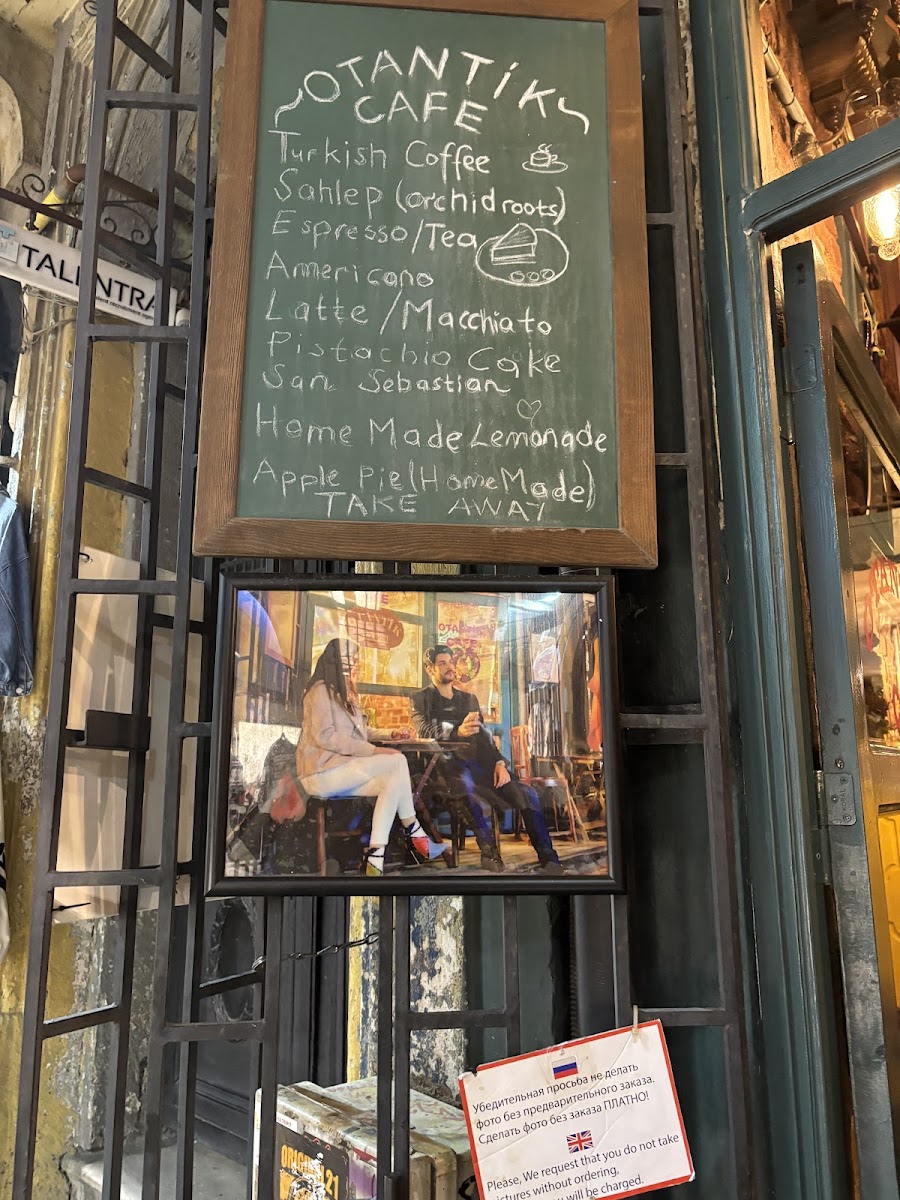 OTANTİK
CAFE
Turkish Coffee
Sahlep (orchid roots)
Espresso/Tea
Americano
Latte/Macchiato
Pistachio Cake
San Sebastian
Home Made Lemonade
Apple pie (Home Made)
TAKE AWAY
TALENTRA
ORIGINAL
21
Убедительная просьба не делать
фото без предварительного заказа.
Сделать фото без заказа ПЛАТНО!
Please, We request that you do not take
pictures without ordering,
you will be charged.